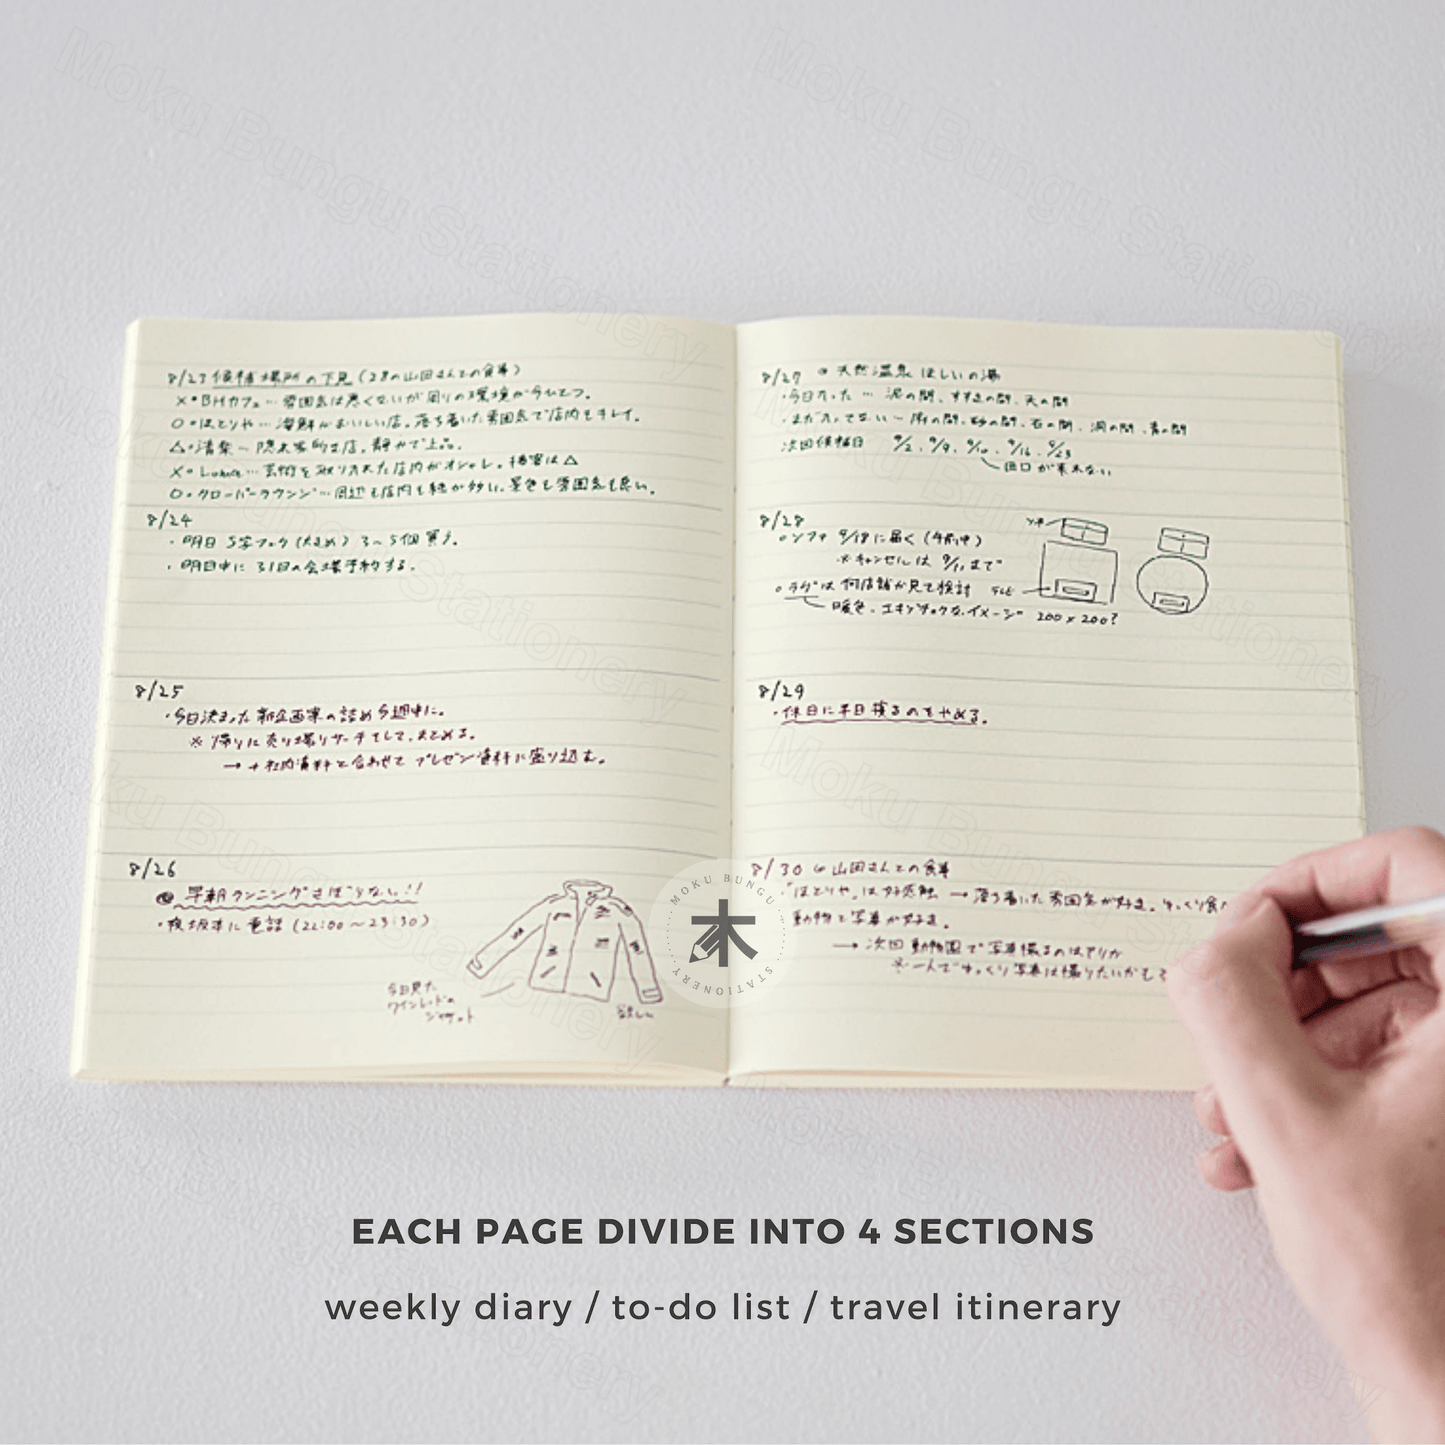 8/23 候補場所の下見 (28の山田さんとの食事)
×・BHカフェ… 雰囲気は悪くないが周りの環境が今ひとつ。
○・ほとりや… 海鮮がおいしい店。落ち着いた雰囲気で店内もキレイ。
△・清楽… 隠れ家的な店。静かで上品。
×・ … 芸術を取り入れた店内がオシャレ。接客は△
○・クローバーラウンジ… 周辺も店内も緑が多い。景色も雰囲気も良い。
8/24
・明日 S字フック (大きめ) 3〜5個 買う。
・明日中に 31日の会場予約する。
8/25
・今日決まった 新企画案の詰め 今週中に。
※ 帰りに売り場リサーチをして、まとめる。
→ + 社内資料と合わせて プレゼン資料に盛り込む。
8/26
早朝ランニングさぼりなし!!
・夜坂本に電話 (22:00〜23:30)
今日見た
ワインレッドの
ジャケット
欲しい
8/27 天然温泉 ほしいの湯
・今日入った … 泥の間、すずきの間、天の間
・まだ入ってない… 雨の間、砂の間、石の間、洞の間、青の間
次回候補日 9/2, 9/9, 9/10, 9/16, 9/23
田口が来れない
8/28
○ソファ 9/18に届く (午前中)
※キャンセルは 9/11まで
○ラグは 何店舗か見て検討
暖色、エキゾチックなイメージ 200×200?
ソファ
テレビ
8/29
・休日に半日寝るのをやめる。
8/30 山田さんとの食事
・「ほとりや」は好感触 → 落ち着いた雰囲気が好き。ゆっくり食べ
動物と写真が好き。
→ 次回 動物園で写真撮るのはアリか
※一人でゆっくり写真は撮りたいかも
MOKU BUNGU
木
STATIONERY
EACH PAGE DIVIDE INTO 4 SECTIONS
weekly diary / to-do list / travel itinerary
Moku Bungu Stationery